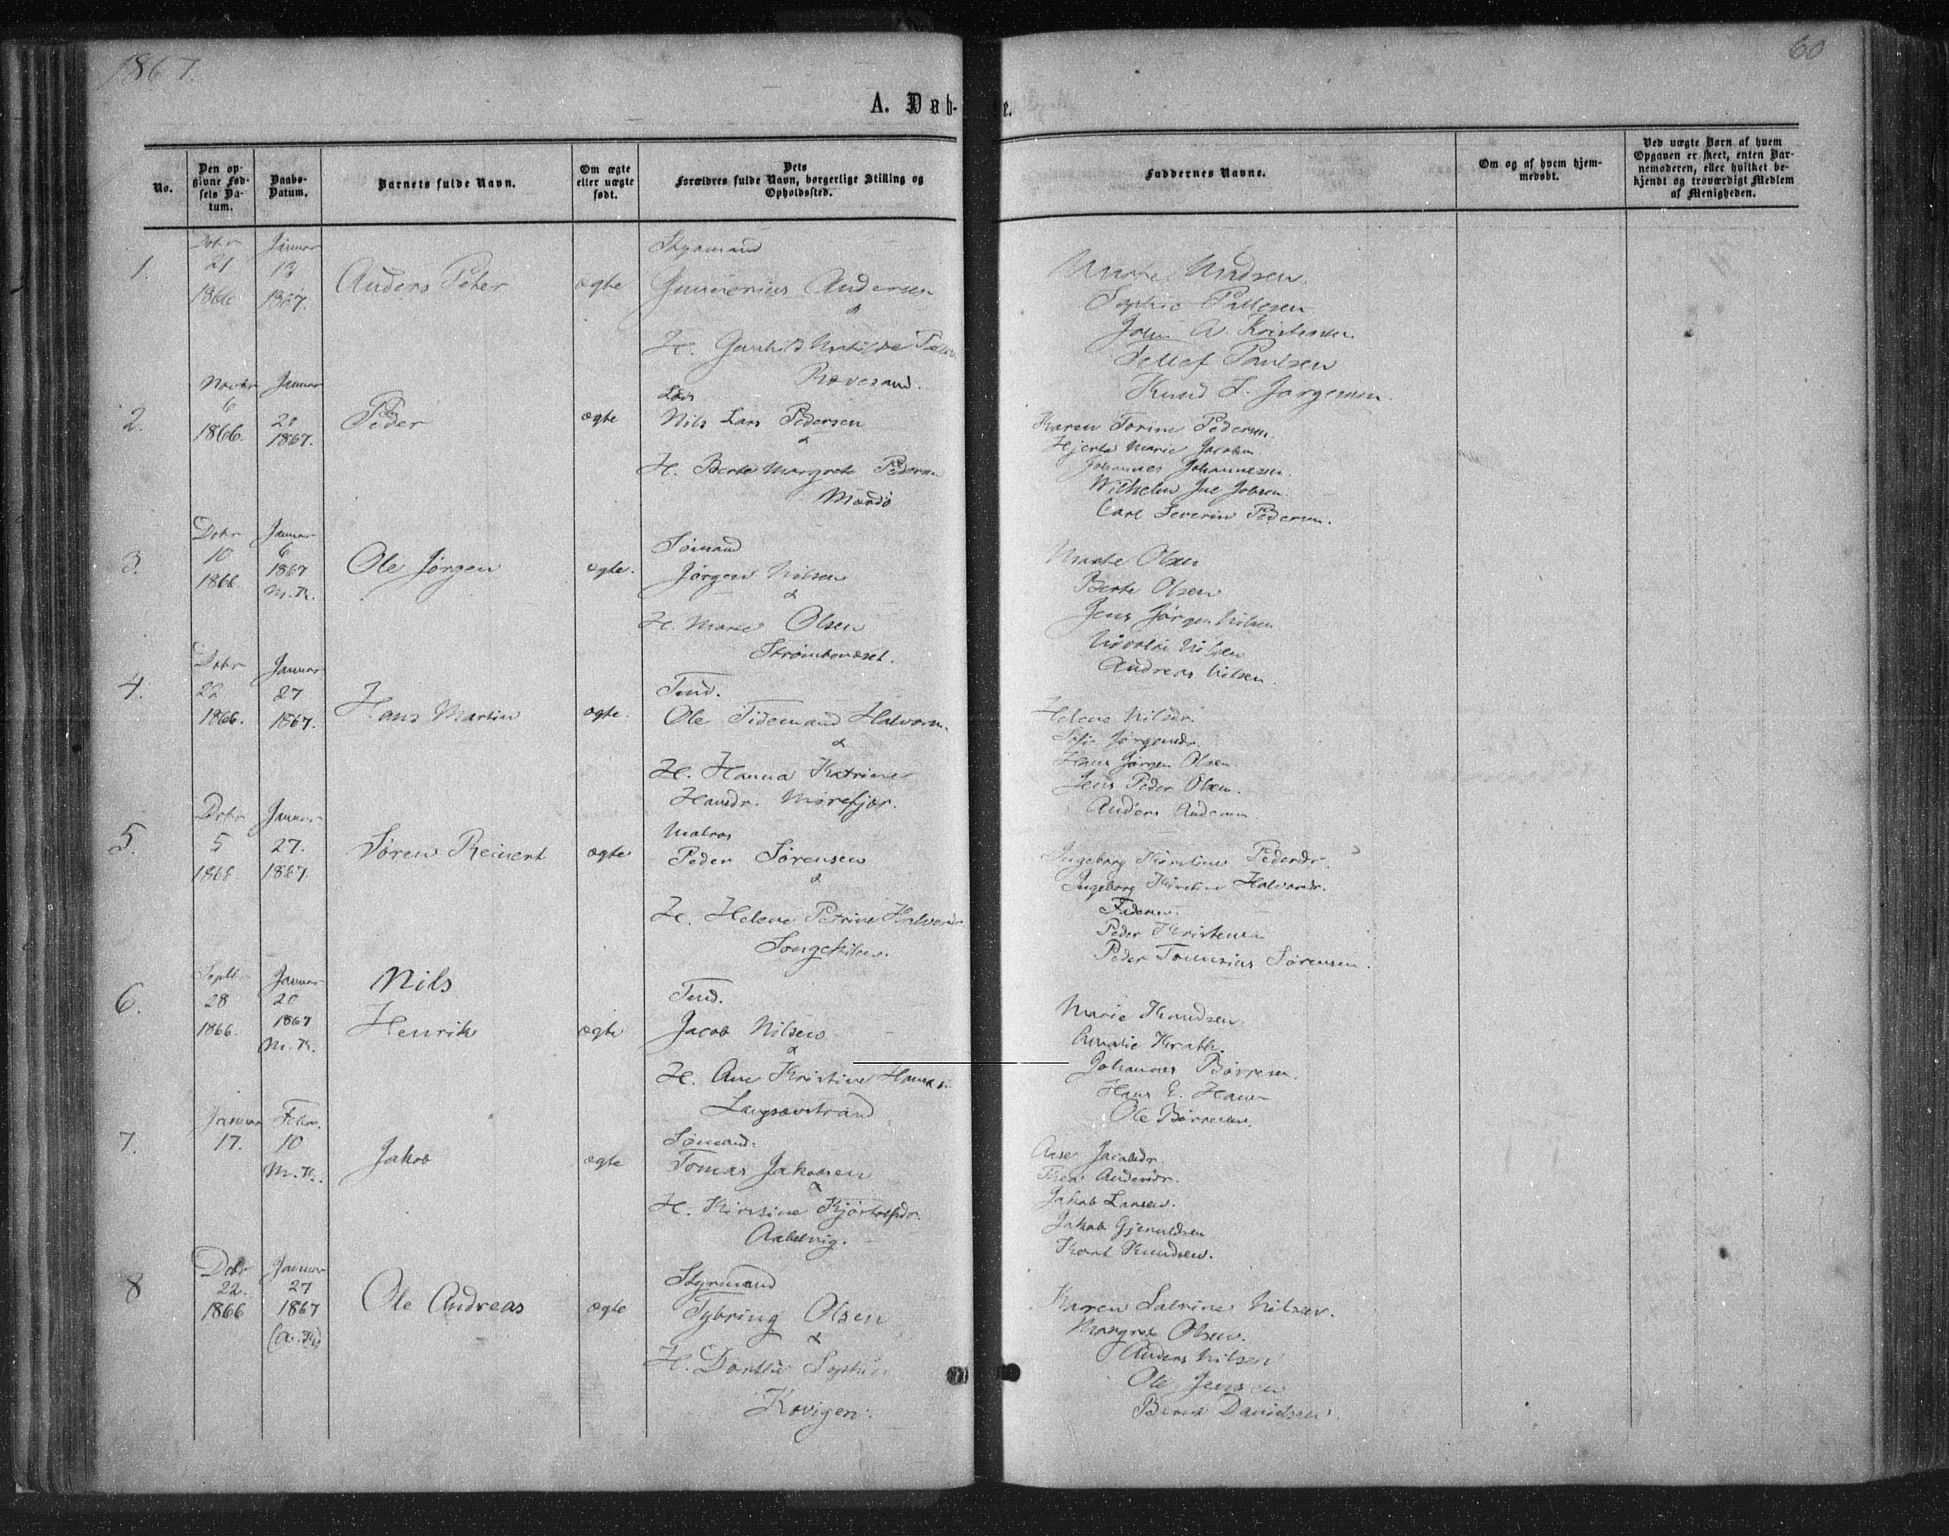 1867.
60
A. Døb-
e.
No.
Den op-
givne Fød-
sels Da-
tum.
Daabs-
Datum.
Barnets fulde Navn.
Om ægte
eller uægte
født.
Dets
Forældres fulde Navn, borgerlige Stilling og
Opholdssted.
Faddernes Navne.
Om og af hvem hjem-
medøbt.
Ved uægte Børn af hvem
Opgaven er skeet, enten Bar-
nemoderen, eller hvilket be-
kjendt og troværdigt Medlem
af Menigheden.
1.
Dcbr
21
1866
Januar
13
1867.
Anders Peter
ægte
Styrmand
Gunnerius Andersen
&
H. Gunhild Matilde
Rævesand.
Sophie Pallesen
John A. Kristensen
Tellef Paulsen
Knud L. Jørgensen.
2.
Novbr
6
1866.
Januar
20
1867.
Peder
ægte
Lods
Nils Lars Pedersen
&
H. Berte Margrete Pedersen
Mardø
Karen Torine Pedersen
Hjerte Marie Jacobsen
Johannes Johannesen.
Wilhelm Jac Jobsen
Carl Severin Pedersen.
3.
Dcbr
10
1866
Januar
6
1867
M.K.
Ole Jørgen
ægte.
Sømand
Jørgen Nilsen
&
H. Marte Olsen
Strømbonæset.
Marte Olsen
Berte Olsen
Jens Jørgen Nilsen
Nilsen
Andreas Nilsen.
4.
Dcbr
22
1866.
Januar
27
1867.
Hans Martin
ægte.
Tmd.
Ole Tidemand Halvorsen
&
H. Hanna Katrine
Hansdr. Mørefjær.
Helene Nilsdr.
Jørgensdr.
Hans Jørgen Olsen.
Jens Peder Olsen.
Anders Andersen
5.
Dcbr
5
1866.
Januar
27.
1867.
Søren Reinert
ægte
Matros
Peder Sørensen
&
H. Helene Petrine Halvorsdr
Songekilen.
Ingeborg Tomine Pedersdr.
Ingeborg Kirstine Halvorsdr.
Faderen.
Peder Kristensen
Peder Tomesius Sørensen.
6.
Septbr
28
1866.
Januar
20
1867
M.K.
Nils
Henrik
ægte
Tmd.
Jacob Nilsen
&
H. Ane Kristine Hansen
Langsævstrand
Marie Knudsen.
Amalie Krabb.
Johannes Børresen.
Hans E. Hansen
Ole Børresen.
7.
Januar
17.
Febr.
10
M.K.
Jakob
ægte
Sømand.
Tomas Jakobsen
&
H. Kirstine Kjøstolfsdr.
Aabelvig.
Aase Jacobsdr.
Thea Andersdr.
Jakob Larsen.
Jakob Gjeruldsen
Karl Knudsen.
8
Dcbr
22.
1866
Januar
27
1867
(a.K.)
Ole Andreas
ægte
Styrmand
Tybring Olsen
&
H. Dorthe Sophie
Kovigen.
Karen Satrine Nilsen.
Margret Olsen.
Anders Nilsen
Ole Jensen
Bernt Davidsen.